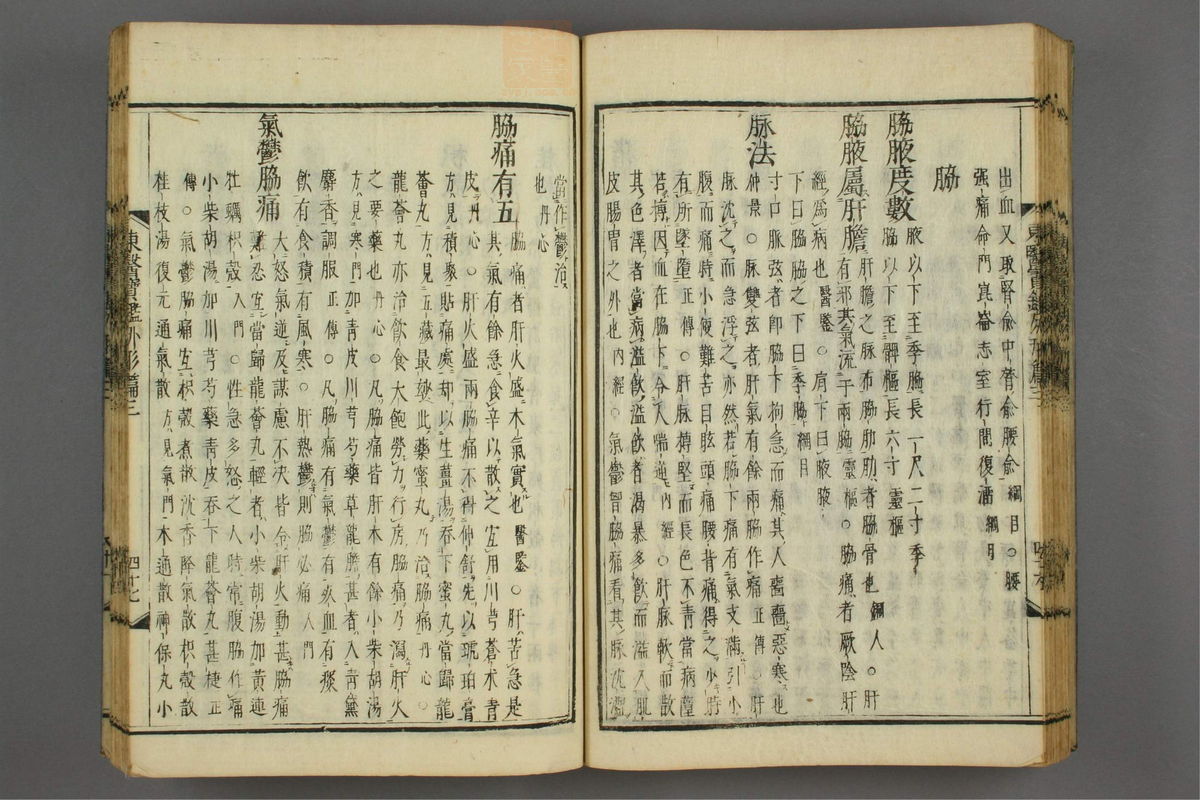 出血又取腎俞中膂俞腰俞 綱目○腰
强痛命門崑崙志室行間復溜 綱目
脇
脇腋度數 腋以下至季脇長一尺二寸季
脇以下至髀樞長六寸 靈樞
脇腋屬肝膽 肝膽之脉布脇肋肋者脇骨也 銅人○肝
有邪其氣流于兩脇 靈樞○脇痛者厥陰肝
經爲病也 醫鑒○肩下曰腋腋
下曰脇脇之下曰季脇 綱目
脉法 寸口脉弦者卽脇下拘急而痛其人嗇嗇惡寒也
仲景○脉雙弦者肝氣有餘兩脇作痛 正傳○肝
脉沈之而急浮之亦然若脇下痛有氣支滿引小
腹而痛時小便難苦目眩頭痛腰背痛得之少時
有所墜墮 正傳○肝脉搏堅而長色不靑當病墮
若搏因血在脇下令人喘逆 內經○肝脉軟而散
其色澤者當病溢飮溢飮者渴暴多飮而溢入肌
皮腸胃之外也 內經○氣鬱胷脇痛看其脉沈濇
當作鬱治
也 丹心
脇痛有五 脇痛者肝火盛木氣實也 醫鑒○肝苦急是
其氣有餘急食辛以散之宜用川芎蒼朮靑
皮 丹心○肝火盛兩脇痛不得伸舒先以琥珀膏
方見積聚貼痛處却以生薑湯吞下蜜丸當歸龍
薈丸 方見五藏最效此藥蜜丸乃治脇痛 丹心○
龍薈丸亦治飮食大飽勞力行房脇痛乃瀉肝火
之要藥也 丹心○凡脇痛皆肝木有餘小柴胡湯
方見寒門加靑皮川芎芍藥草龍膽甚者入靑黛
麝香調服 正傳○凡脇痛有氣鬱有痰血有痰
飮有食積有風寒○肝熱鬱則脇必痛 入門
氣鬱脇痛 大怒氣逆及謀慮不決皆令肝火動甚脇痛
難忍宜當歸龍薈丸輕者小柴胡湯加黃連
牡蠣枳殼 入門○性急多怒之人時常腹脇作痛
小柴胡湯加川芎芍藥靑皮吞下龍薈丸甚捷 正
傳○氣鬱脇痛宜枳殼煮散沈香降氣散枳殼散
桂枝湯復元通氣散 方見氣門木通散神保丸小
東醫寶鑑外形篇三
四十七